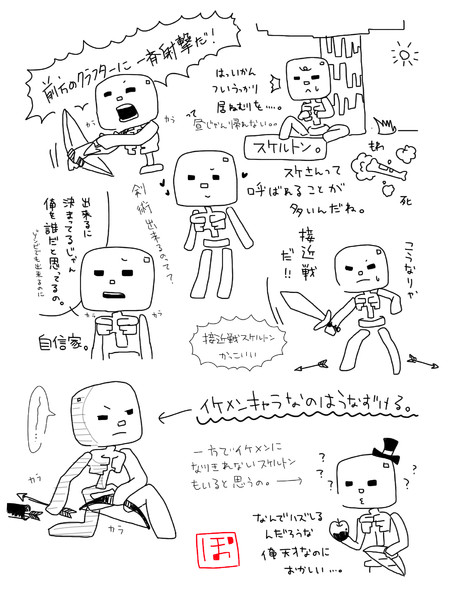 前方のクラフターに一斉射撃だ！
カラ
カラ
はっいかん
ついうっかり
居ねむりを……。
って
昼じゃん帰れない。。
スケルトン。
スケさんって
呼ばれることが
多いんだね。
もわ
死
剣術出来るのって？
出来るに
決まってるじゃん
俺を誰だと思ってるの。
カラ
カラ
自信家。
こうなりゃ
接近戦
だ!!
接近戦スケルトン
かっこいい
イケメンキャラなのはうなずける。
………
カラ
カラ
一方でイケメンに
なりきれないスケルトン
もいると思うの。
? ? ? ?
なんでハズレる
んだろうな
俺天才なのに
おかしい…。
ぽ